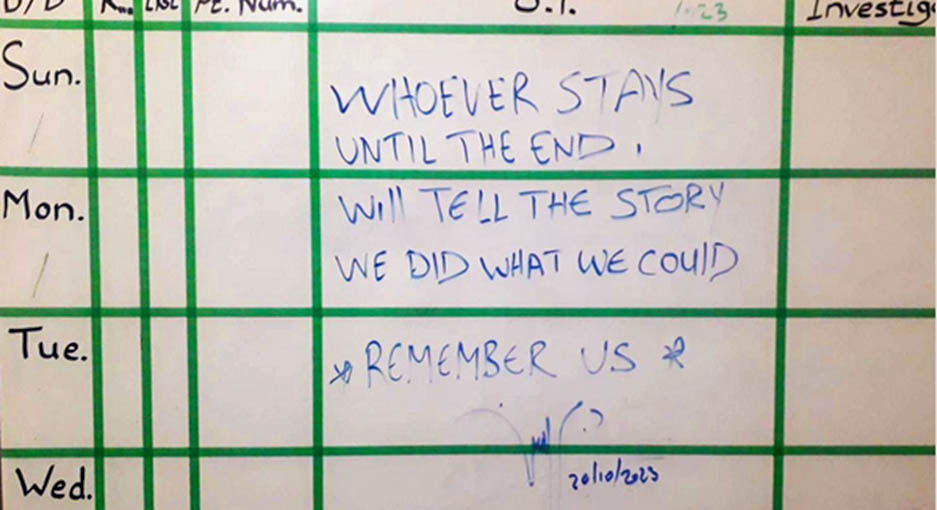 Pt. Num.
Investig
Sun.
WHOEVER STAYS
UNTIL THE END.
Mon.
Will TELL THE STORY
WE DID WHAT WE COUlD
Tue.
*REMEMBER US *
20/10/2023
Wed.